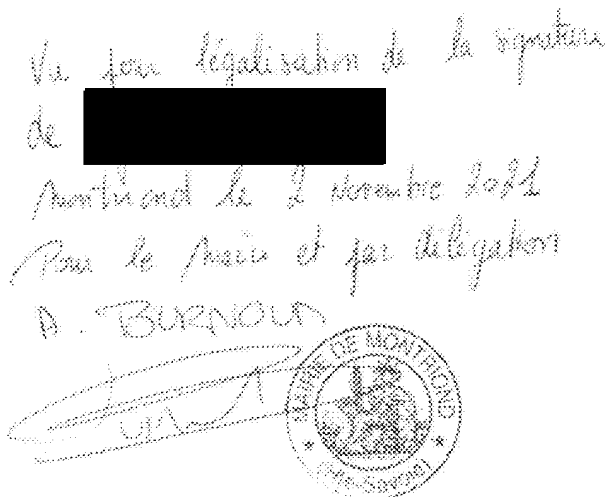 Vu pour légalisation de la signature
de
Montriond le 2 Novembre 2021
Pour le Maire et par délégation
A. BURNOUD
MAIRIE DE MONTRIOND
(Hte-Savoie)